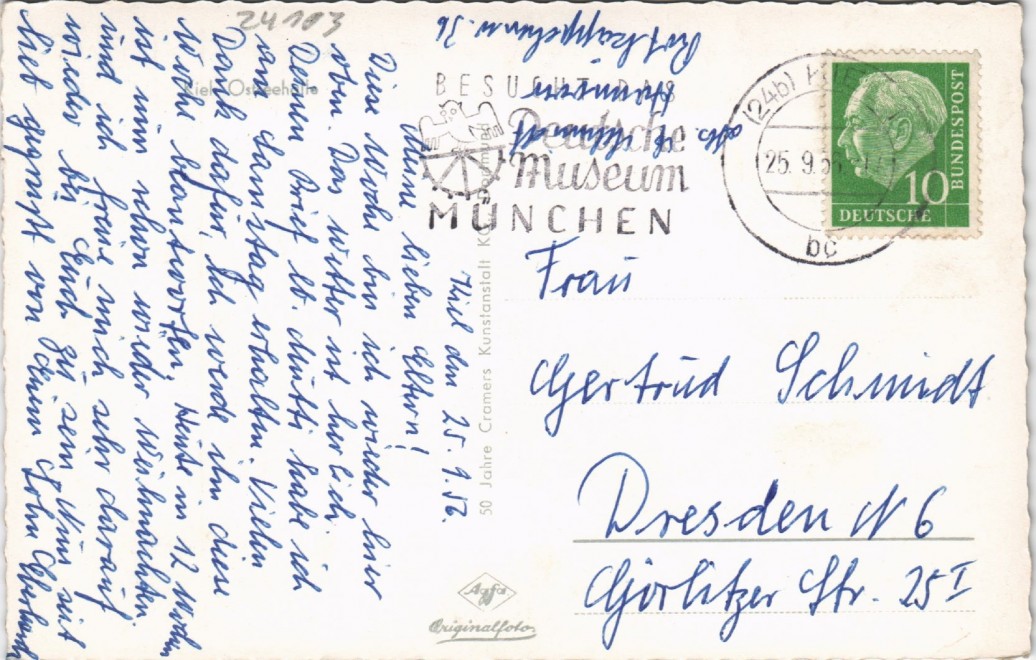 24103
Kiel, Ostseehalle
Kiel den 25. 9. 56.
Meine lieben Eltern!
Diese Woche bin ich wieder hier
oben. Das Wetter ist herrlich.
Deinen Brief lb. Mutti habe ich
am Samstag erhalten. Vielen
Dank dafür, Ich werde ihn diese
Woche beantworten. Heute in 12 Wochen
ist nun schon wieder Weihnachten
und ich freue mich sehr darauf
wieder bei Euch zu sein. Nun seit
lieb gegrüßt von Eurem Sohn
50 Jahre Cramers Kunstanstalt
Abs.
Schmidt
Hannover
Rotkäppchenw. 36
BESUCHT DAS
Deutsche
Museum
MÜNCHEN
(24b) KIEL
25. 9. 56
bc
BUNDESPOST
10
DEUTSCHE
Frau
Gertrud Schmidt
Dresden N 6
Görlitzer Str. 25 I
Agfa
Originalfoto